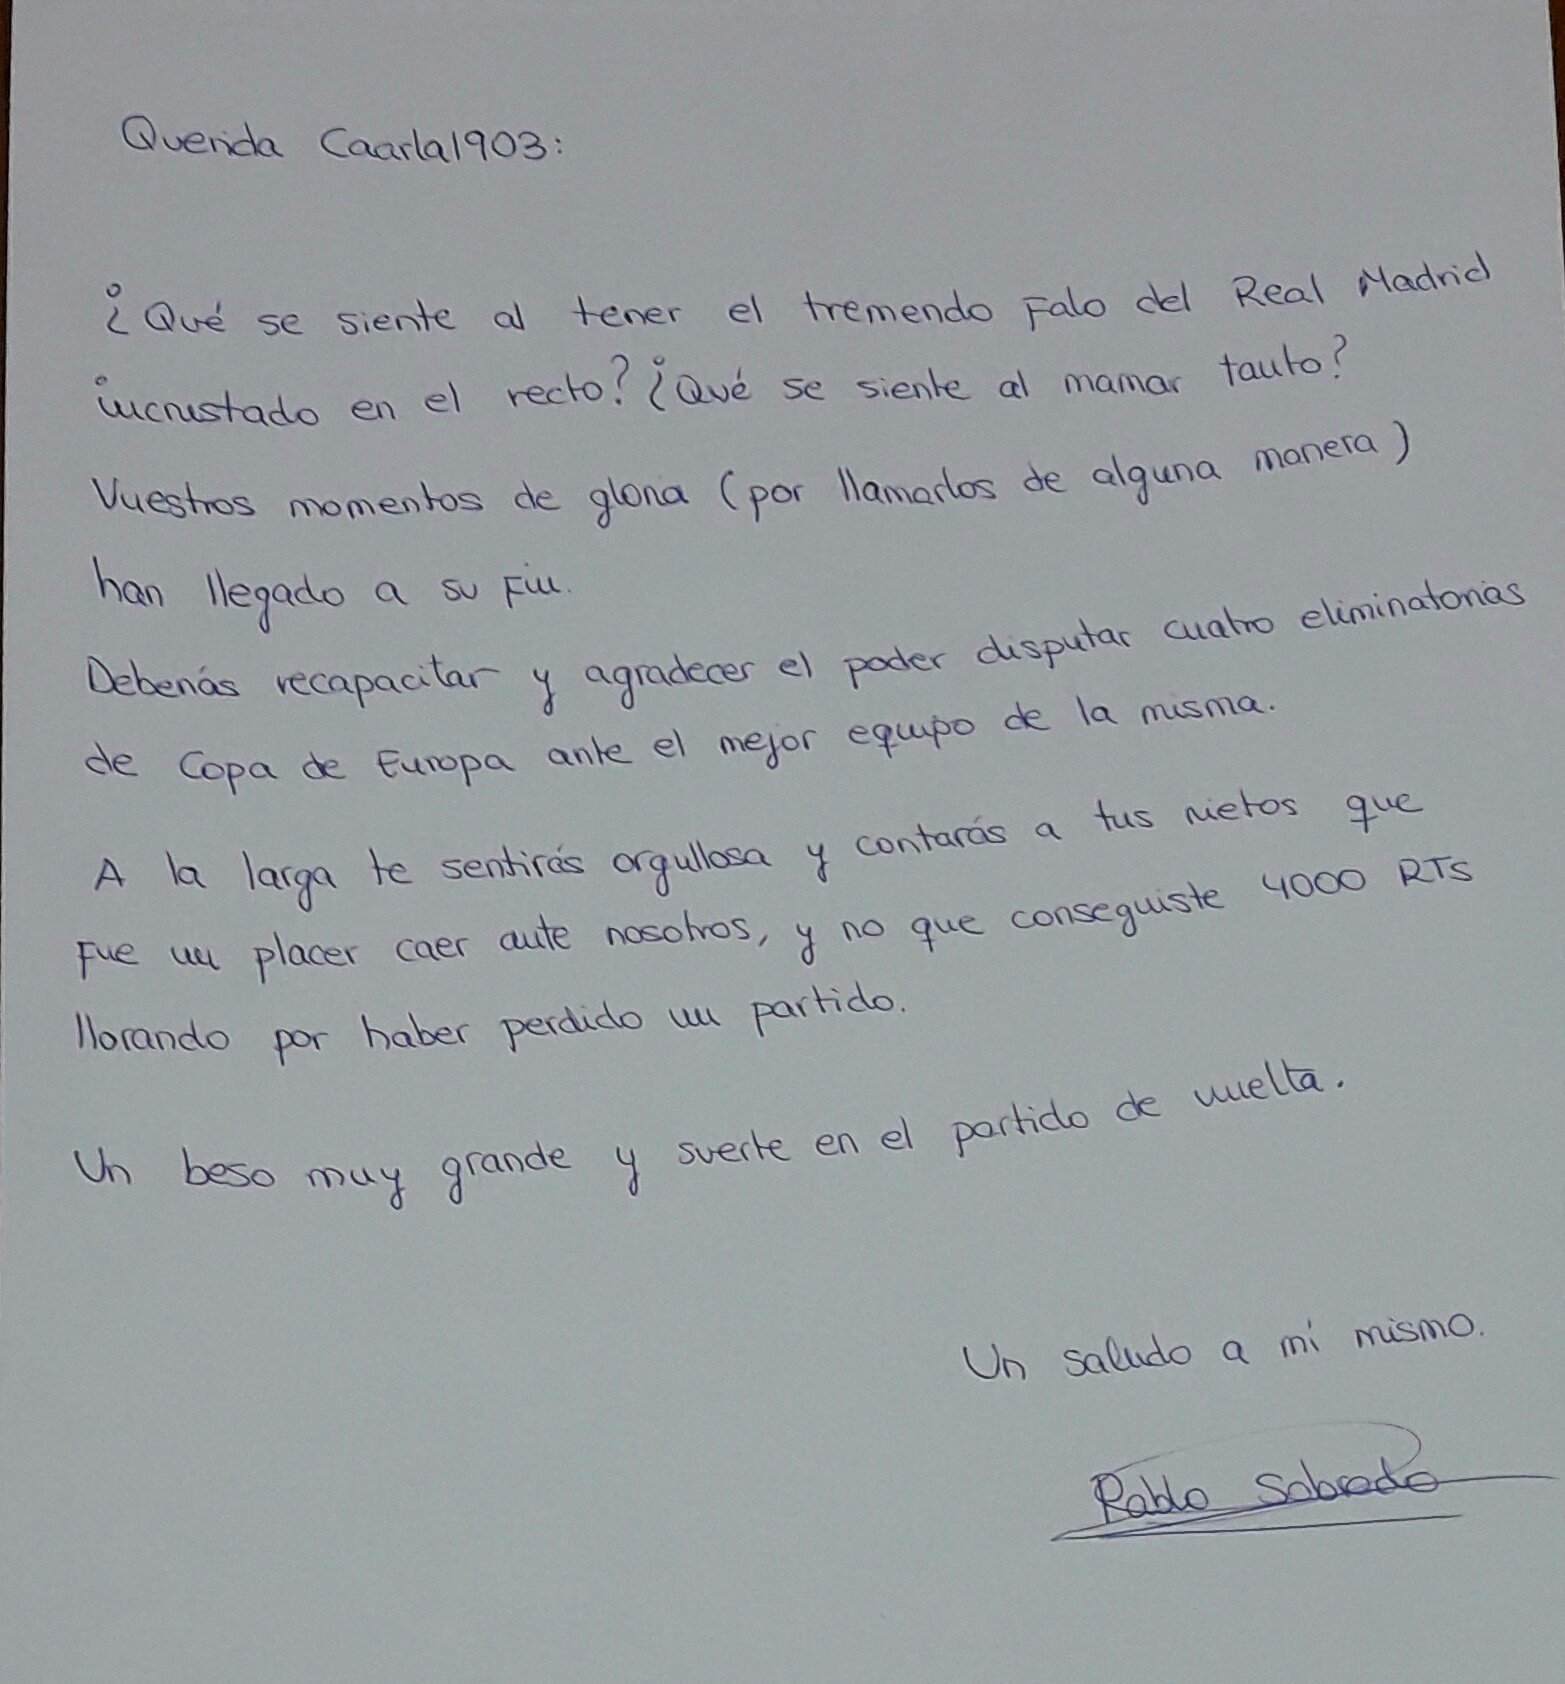 Querida Caarla1903:
¿Qué se siente al tener el tremendo falo del Real Madrid
incrustado en el recto? ¿Qué se siente al mamar tanto?
Vuestros momentos de gloria (por llamarlos de alguna manera)
han llegado a su fin.
Deberías recapacitar y agradecer el poder disputar cuatro eliminatorias
de Copa de Europa ante el mejor equipo de la misma.
A la larga te sentirás orgullosa y contarás a tus nietos que
fue un placer caer ante nosotros, y no que conseguiste 4000 RTs
llorando por haber perdido un partido.
Un beso muy grande y suerte en el partido de vuelta.
Un saludo a mí mismo.
Pablo Sobrado